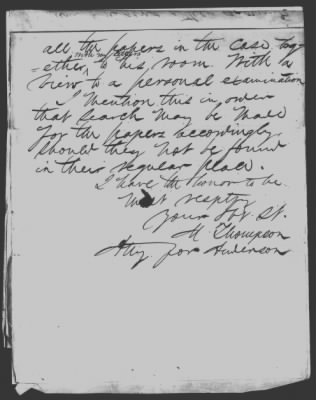 all the papers in the case tog-
with my letters
-ether, to his room. With a
view to a personal examination
I mention this in order
that search may be made
for the papers accordingly.
Should they not be found
in their regular place.
I have the honor to be.
Most respty
Your Obt. St.
M Thompson
Atty for Anderson